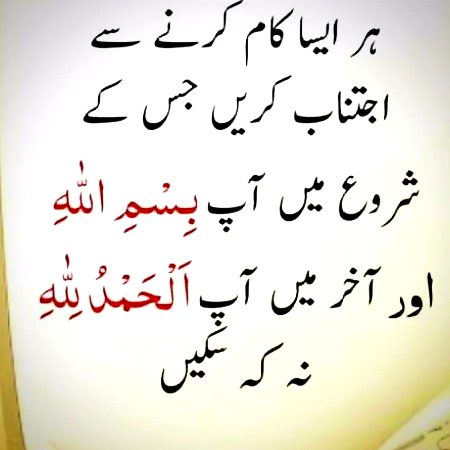 ہر ایسا کام کرنے سے
اجتناب کریں جس کے
شروع میں آپ بِسْمِ اللہِ
اور آخر میں آپ اَلْحَمْدُ لِلّٰهِ
نہ کہ سکیں